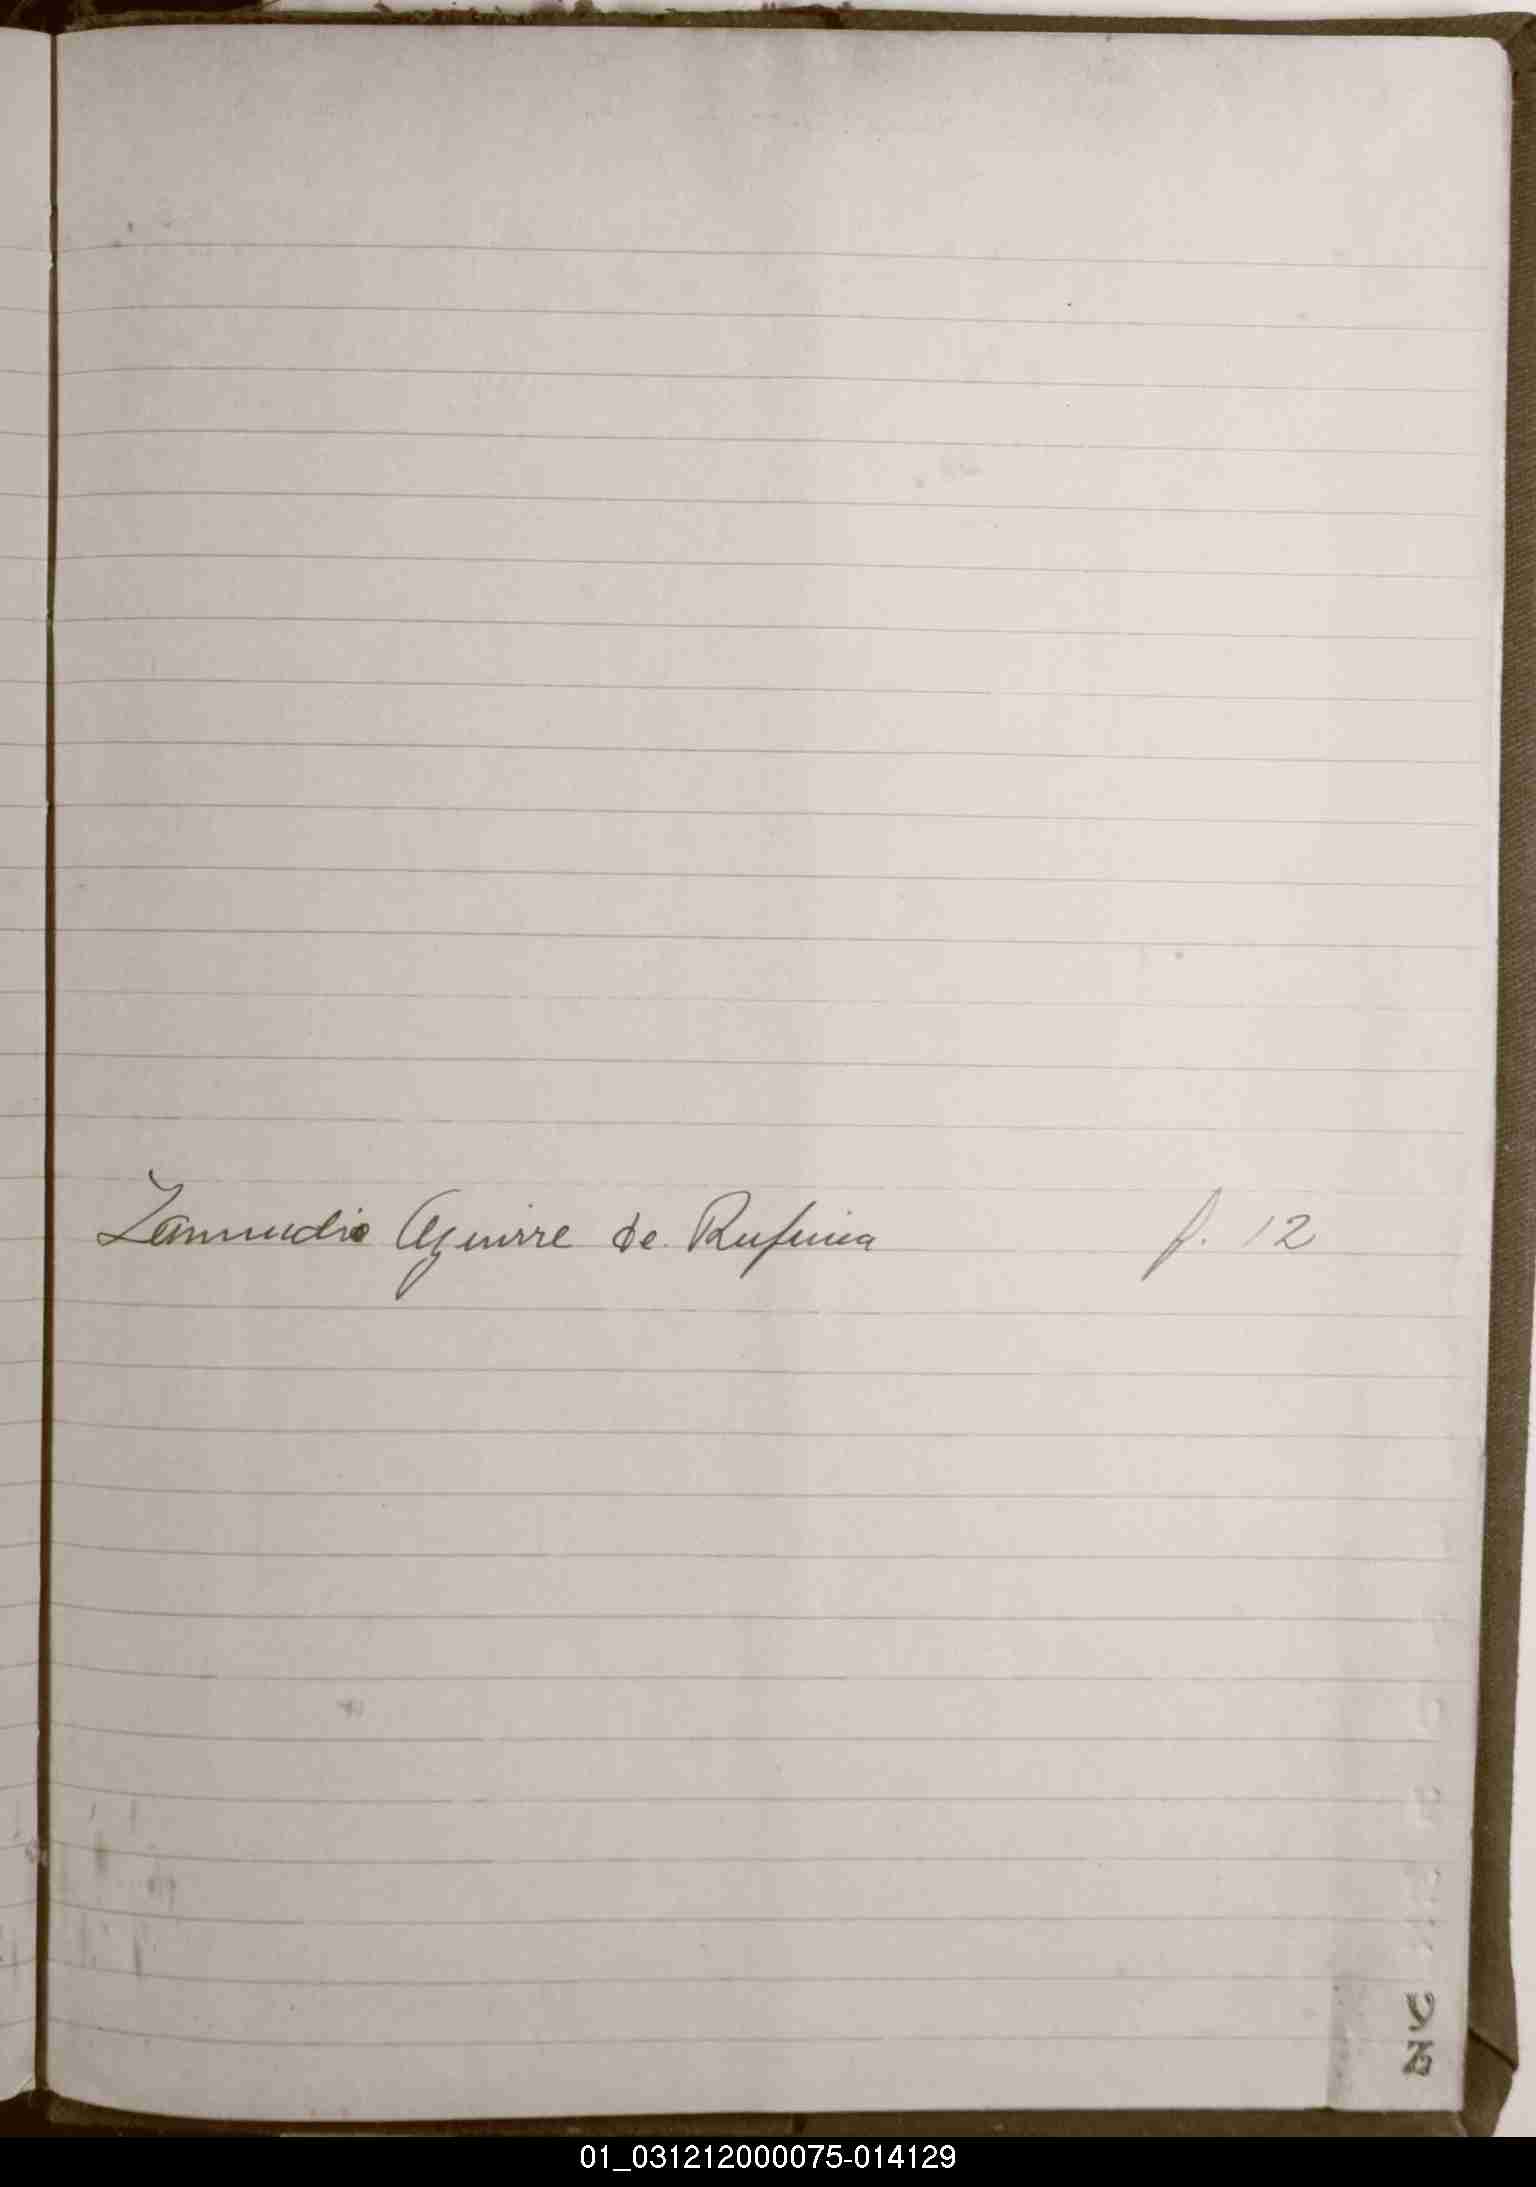 Zamudio Aguirre de Rufina f. 12
Y
Z
01_031212000075-014129